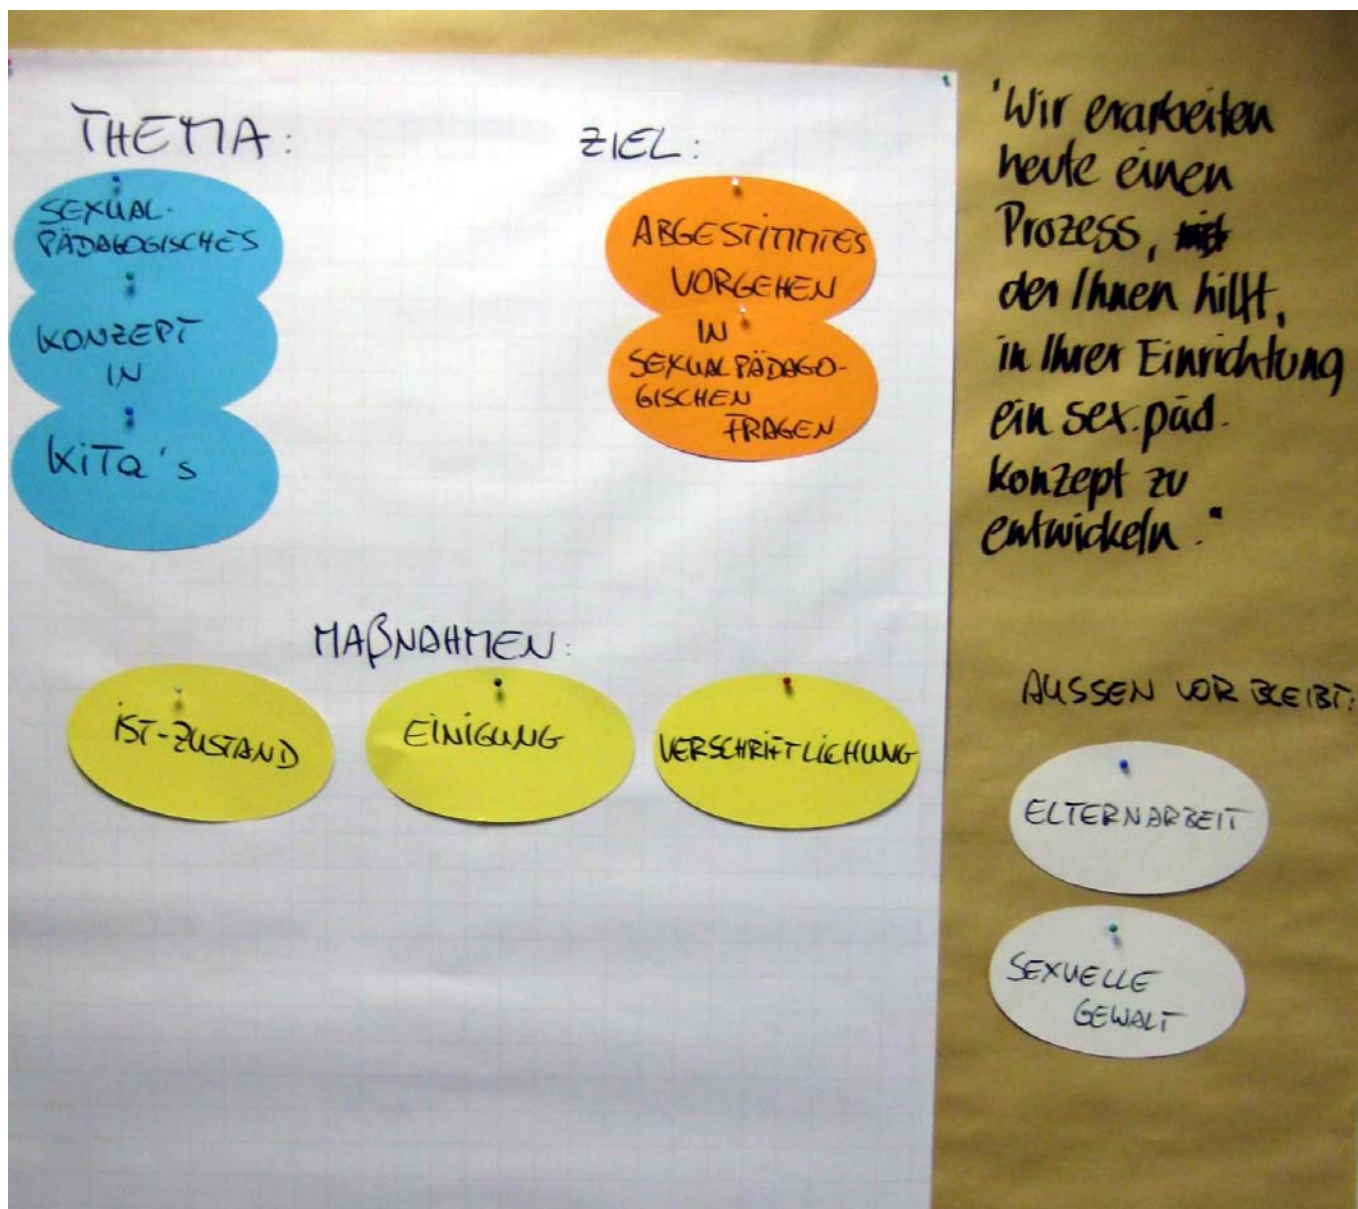 THEMA:
SEXUAL-
PÄDAGOGISCHES
KONZEPT
IN
KiTa's
ZIEL:
ABGESTIMMTES
VORGEHEN
IN
SEXUALPÄDAGO-
GISCHEN
FRAGEN
MAßNAHMEN:
iST-ZUSTAND
EiNiGUNG
VERSCHRiFTLiCHUNG
"Wir erarbeiten
heute einen
Prozess,
der Ihnen hilft,
in Ihrer Einrichtung
ein sex.päd.
Konzept zu
entwickeln."
AUSSEN VOR BLEIBT:
ELTERNARBEIT
SEXUELLE
GEWALT